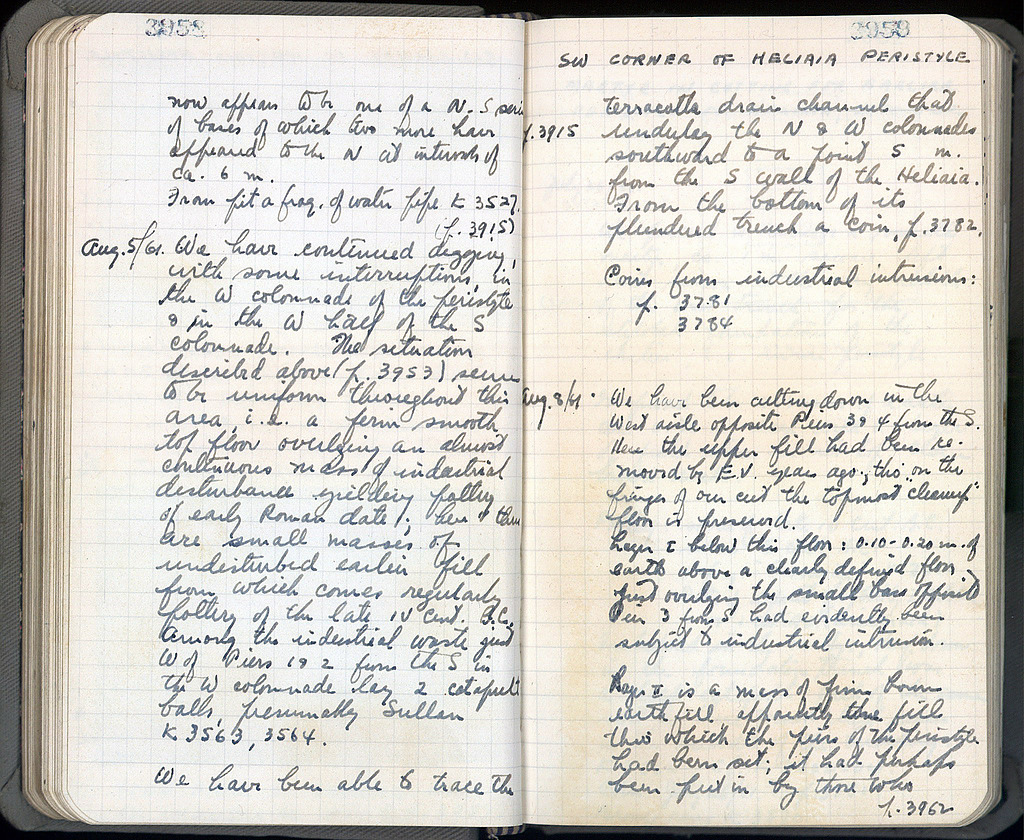 3958
now appears to be one of a N-S series
of bases of which two more have
appeared to the N at intervals of
ca. 6 m.
From pit a frag. of water pipe K 3527.
(p. 3915)
Aug. 5/61. We have continued digging,
with some interruptions, in
the W colonnade of the peristyle
& in the W half of the S
colonnade. The situation
described above (p. 3953) seems
to be uniform throughout this
area, i.e. a firm smooth
top floor overlying an almost
continuous mass of industrial
disturbance yielding pottery
of early Roman date; here & there
are small masses of
undisturbed earlier fill
from which comes regularly
pottery of the late IV cent. B.C.
Among the industrial waste just
W of Piers 1 & 2 from the S in
the W colonnade lay 2 catapult
balls, presumably Sullan
K 3563, 3564.
We have been able to trace the
3958
SW CORNER OF HELIAIA PERISTYLE
terracotta drain channel that
p. 3915 underlay the N & W colonnades
southward to a point 5 m.
from the S wall of the Heliaia.
From the bottom of its
plundered trench a coin, p. 3782.
Coins from industrial intrusions:
p. 3781
3784
Aug. 8/61. We have been cutting down in the
West aisle opposite Piers 3 & 4 from the S.
Here the upper fill had been re-
moved by E.V. years ago; tho' on the
fringes of our cut the topmost "cleanup"
floor is preserved.
Layer I below this floor: 0.10-0.20 m. of
earth above a clearly defined floor.
Just overlying the small base opposite
Pier 3 from S had evidently been
subject to industrial intrusion.
Layer II is a mass of firm brown
earth fill apparently the fill
thru which the piers of the peristyle
had been set; it had perhaps
been put in by those who
p. 3962